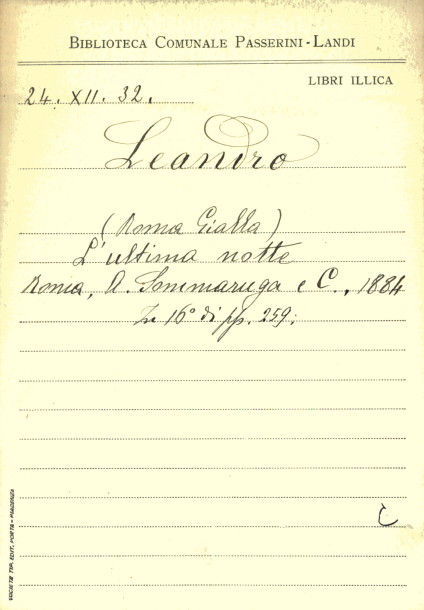 BIBLIOTECA COMUNALE PASSERINI-LANDI
LIBRI ILLICA
24. XII. 32.
Leandro
(Roma Gialla)
L'ultima notte
Roma, A. Sommaruga e C., 1884
In 16° di pp. 259.
C
SOCIETÀ TIP. EDIT. PORTA - PIACENZA